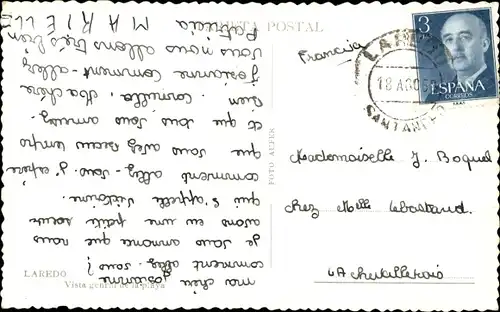 TARJETA POSTAL
Francia
LAREDO
18 AGO 6
SANTANDER
3
ESPAÑA
CORREOS
ma chère
josianne
comment allez-vous ?
je vous annonce que nous
avons eu une petite soeur
qui s'appelle Victorine.
comment allez-vous j'espère
que vous avez beau temps
et que vous vous amusez
bien Cornelia. Ma chère
josianne comment-allez
vous nous allons très bien
Patricia
MARIELLE
Mademoiselle J. Boquel
chez Melle
FOTO ALFER
LAREDO
Vista general de la playa